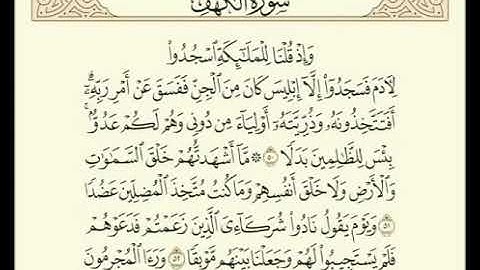 سورة الكهف
وَإِذْ قُلْنَا لِلْمَلَٰٓئِكَةِ ٱسْجُدُوا۟
لِـَٔادَمَ فَسَجَدُوٓا۟ إِلَّآ إِبْلِيسَ كَانَ مِنَ ٱلْجِنِّ فَفَسَقَ عَنْ أَمْرِ رَبِّهِۦٓ ۗ
أَفَتَتَّخِذُونَهُۥ وَذُرِّيَّتَهُۥٓ أَوْلِيَآءَ مِن دُونِى وَهُمْ لَكُمْ عَدُوٌّۢ ۚ
بِئْسَ لِلظَّٰلِمِينَ بَدَلًا ٥٠ ۞ مَّآ أَشْهَدتُّهُمْ خَلْقَ ٱلسَّمَٰوَٰتِ
وَٱلْأَرْضِ وَلَا خَلْقَ أَنفُسِهِمْ وَمَا كُنتُ مُتَّخِذَ ٱلْمُضِلِّينَ عَضُدًا
٥١ وَيَوْمَ يَقُولُ نَادُوا۟ شُرَكَآءِىَ ٱلَّذِينَ زَعَمْتُمْ فَدَعَوْهُمْ
فَلَمْ يَسْتَجِيبُوا۟ لَهُمْ وَجَعَلْنَا بَيْنَهُم مَّوْبِقًا ٥٢ وَرَءَا ٱلْمُجْرِمُونَ